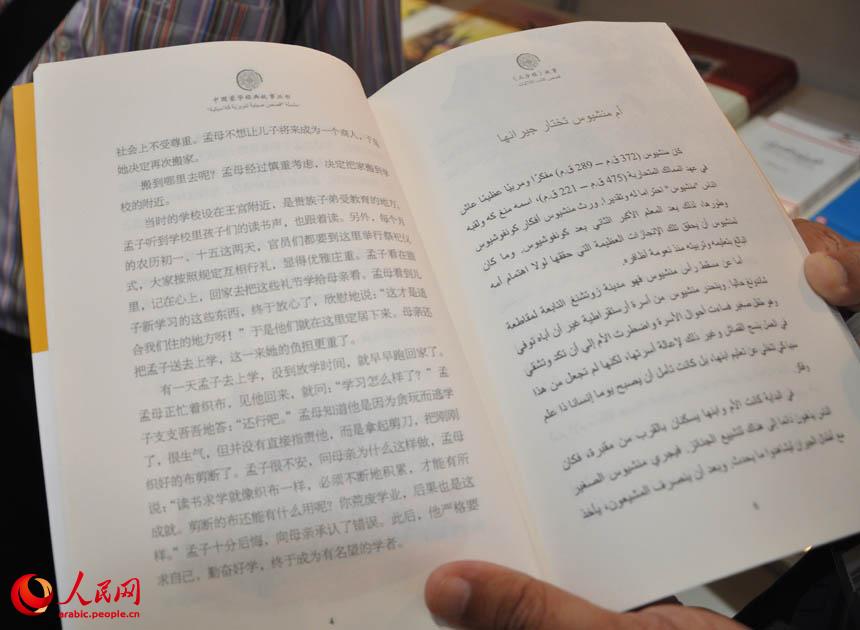 中国蒙学经典故事丛书
社会上不受尊重。孟母不想让儿子将来成为一个商人，于是
她决定再次搬家。
搬到哪里去呢？孟母经过慎重考虑，决定把家搬到学
校的附近。
当时的学校设在王宫附近，是贵族子弟受教育的地方，
孟子听到学校里孩子们的读书声，也跟着读。另外，每个月
的农历初一、十五这两天，官员们都要到这里举行祭祀仪
式，大家按照规定互相行礼，显得优雅庄重。孟子看在眼
里，记在心上，回家去把这些礼节学给母亲看。孟母看到儿
子新学习的这些东西，终于放心了，欣慰地说：“这才是适
合我们住的地方呀！”于是他们就在这里定居下来。母亲还
把孟子送去上学，这一来她的负担更重了。
有一天孟子去上学，没到放学时间，就早早跑回家了。
孟母正忙着织布，见他回来，就问：“学习怎么样了？”孟
子支支吾吾地答：“还行吧。”孟母知道他是因为贪玩而逃学
了，很生气，但并没有直接指责他，而是拿起剪刀，把刚刚
织好的布剪断了。孟子很不安，问母亲为什么这样做，孟母
说：“读书求学就像织布一样，必须不断地积累，才能有所
成就。剪断的布还能有什么用呢？你荒废学业，后果也是这
样。”孟子十分后悔，向母亲承认了错误。此后，他严格要
求自己，勤奋好学，终于成为有名望的学者。
4
《三字经》故事
أم منشيوس تختار جيرانها
كان منشيوس (372 ق.م – 289 ق.م) مفكرًا ومربيًا عظيمًا عاش
في عهد الممالك المتحاربة (475 ق.م – 221 ق.م)، اسمه منغ كه ولقبه
الناس "منشيوس" احترامًا له وتقديرا. ورث منشيوس أفكار كونفوشيوس
وطورها، لذلك يعد المعلم الأكبر الثاني بعد كونفوشيوس. وما كان
لمنشيوس أن يحقق تلك الإنجازات العظيمة التي حققها لولا اهتمام أمه
البالغ بتعليمه وتربيته منذ نعومة أظفاره.
أما عن مسقط رأس منشيوس فهو مدينة زوتشنغ التابعة لمقاطعة
شاندونغ حاليا. وينحدر منشيوس من أسرة أرستقراطية غير أن أباه توفي
وهو طفل صغير فساءت أحوال الأسرة واضطرت الأم إلى أن تكد وتشقى
في العمل بنسج القماش وغير ذلك لإعالة أسرتها، لكنها لم تجعل من هذا
سببا كي تتخلى عن تعليم ابنها، بل كانت تأمل أن يصبح يوما إنسانا ذا علم
وفكر.
في البداية كانت الأم وابنها يسكنان بالقرب من مقبرة، فكان
الناس يذهبون دائما إلى هناك لتشييع الجنائز. فيجري منشيوس الصغير
مع أطفال الجيران ليشاهدوا ما يحدث. وبعد أن ينصرف المشيعون، يأخذ
5
人民网
arabic.people.cn